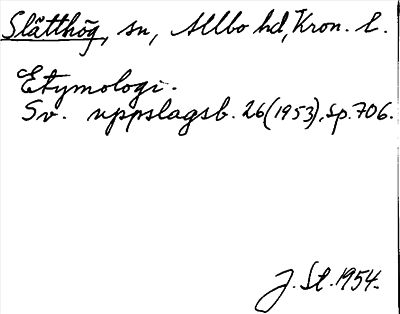 Slätthög, sn, Allbo hd, Kron. l.
Etymologi.
Sv. uppslagsb. 26(1953), sp. 706.
J. St. 1954.